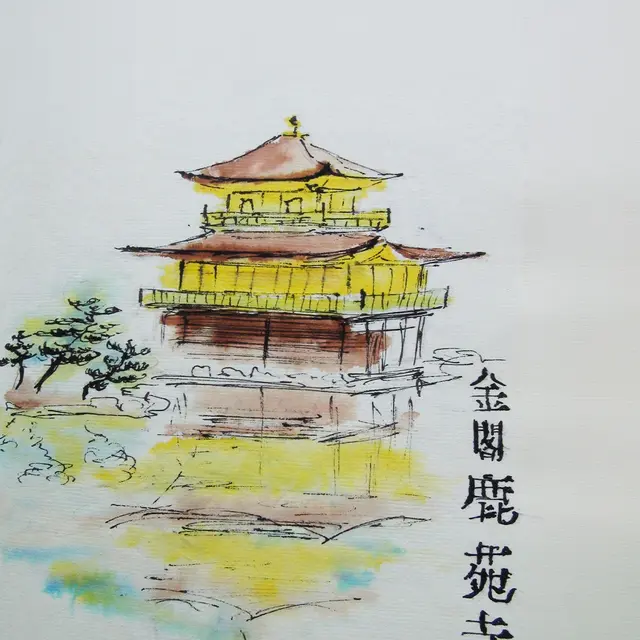 金閣鹿苑寺